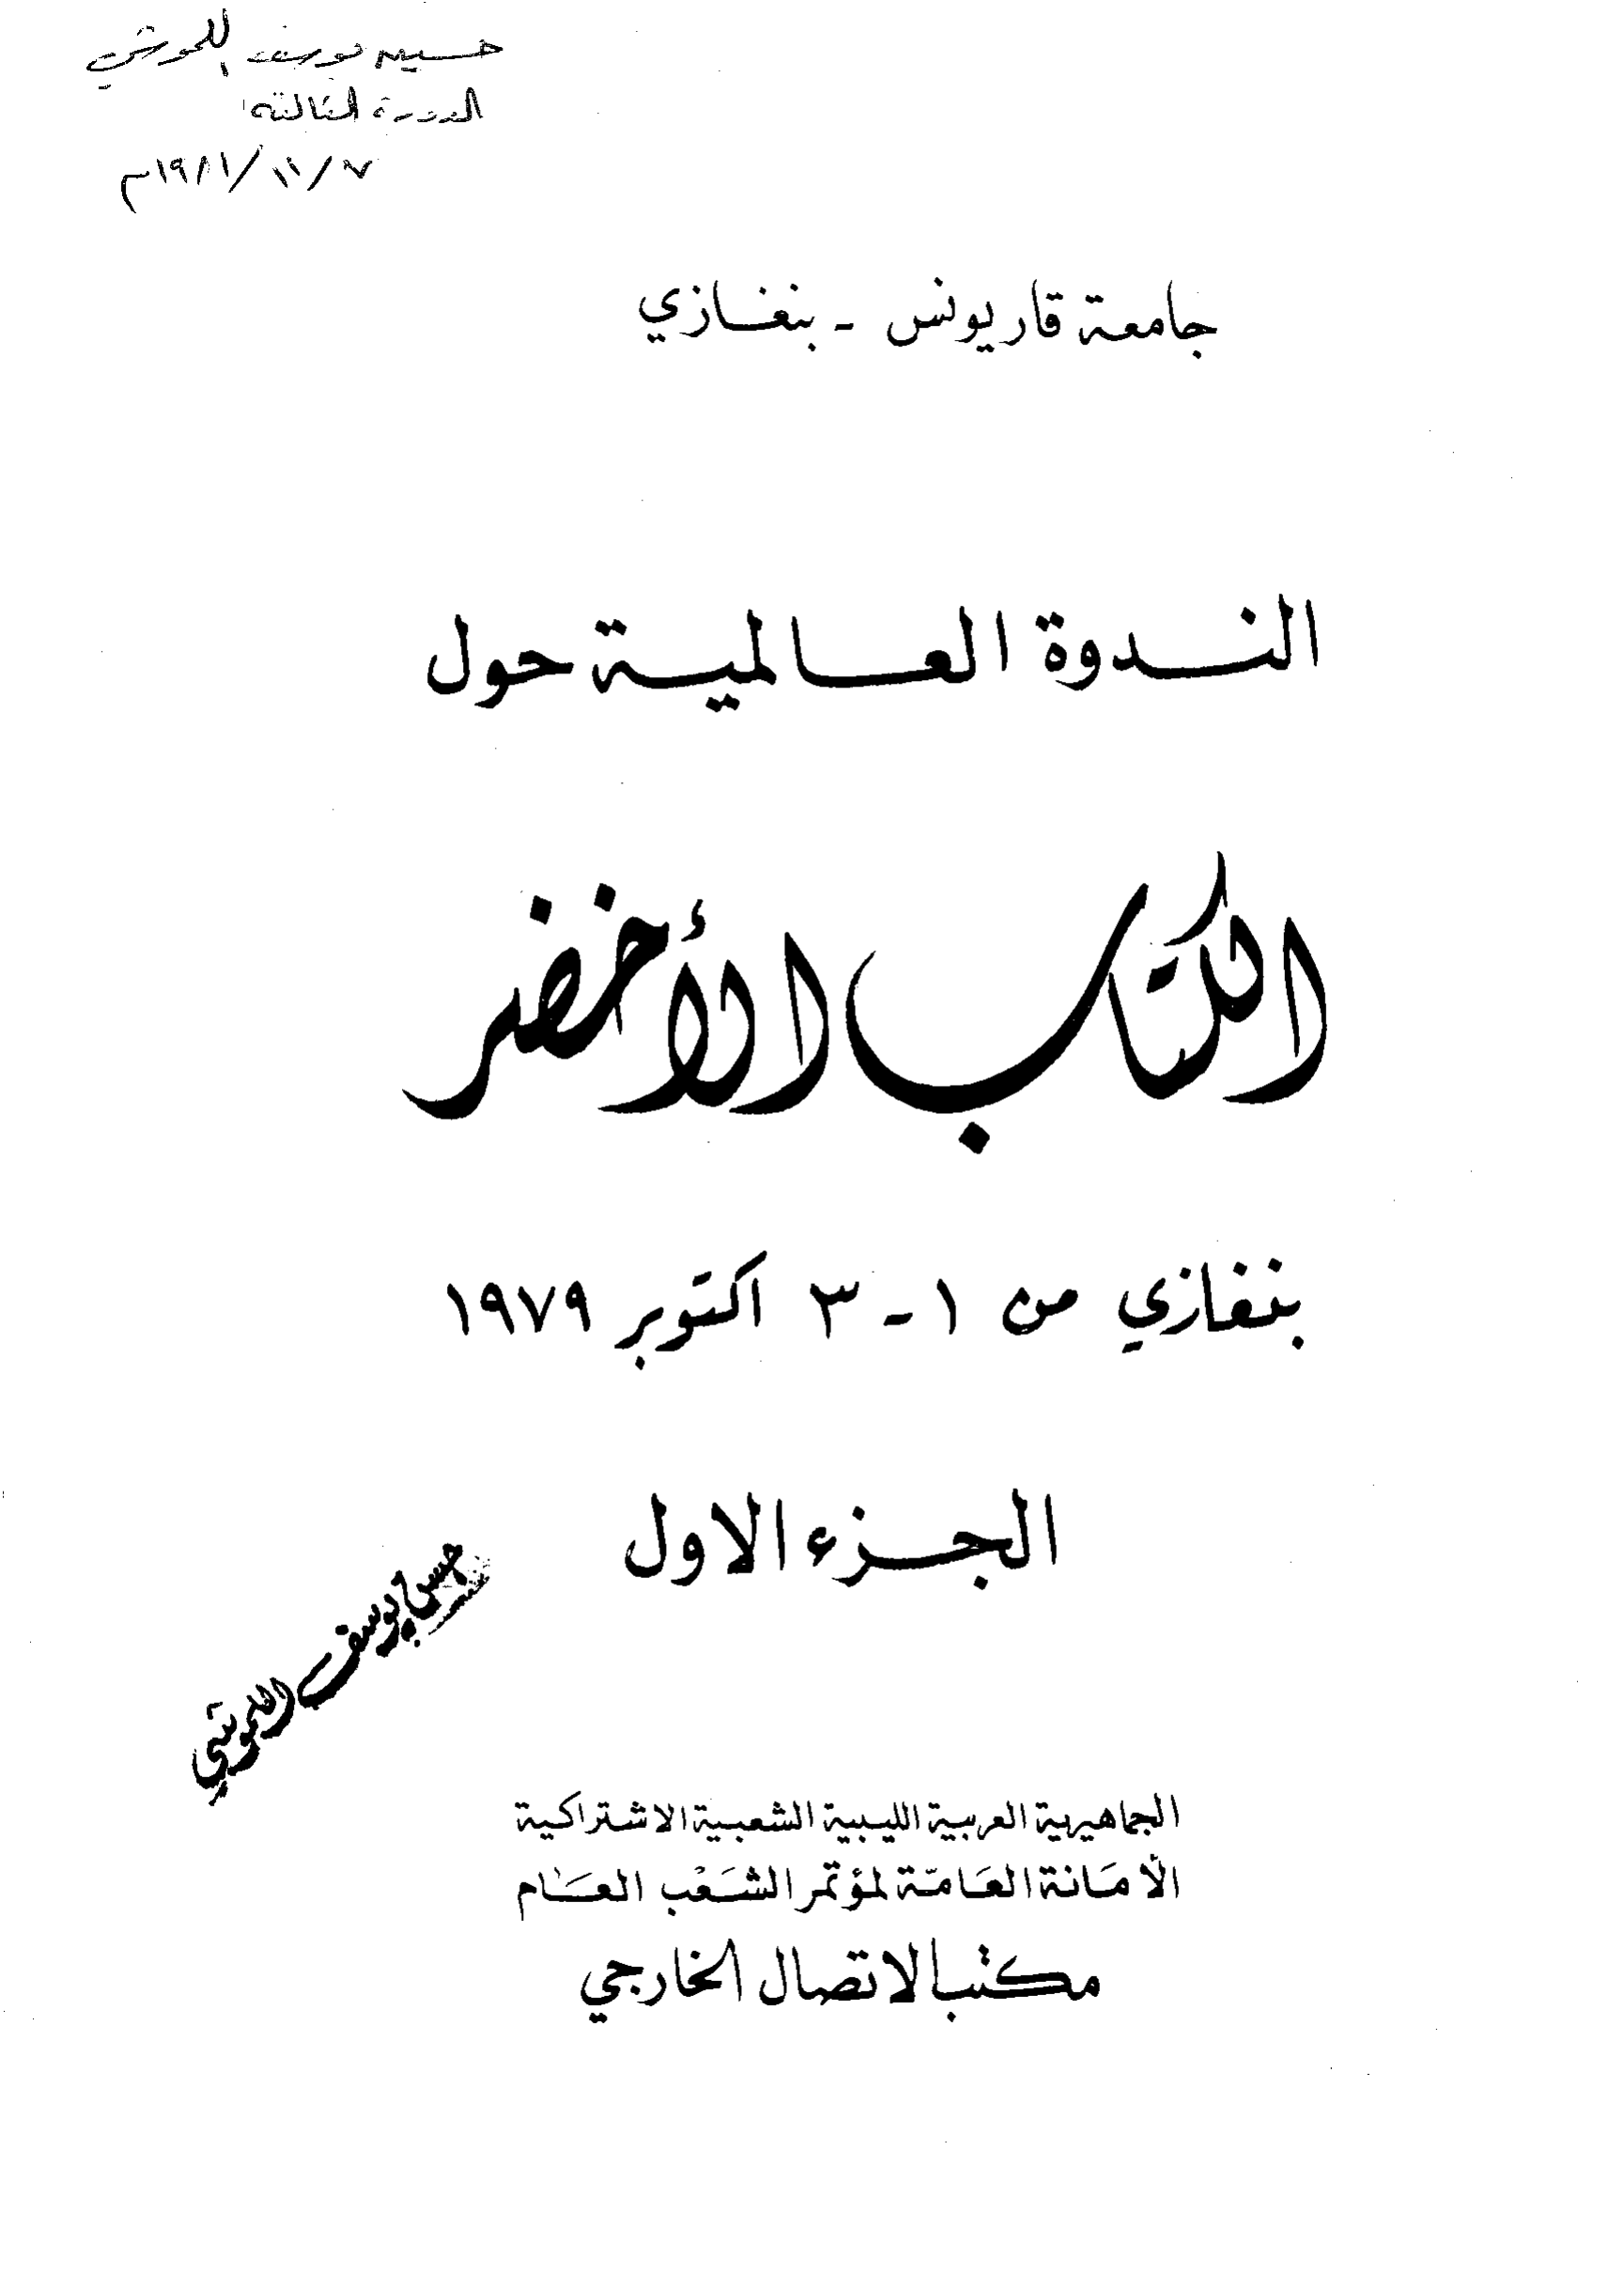 حسين يوسف
الدورة الثالثة
٧/١١/١٩٨١م
جامعة قاريونس - بنغازي
الندوة العالمية حول
الكتاب الأخضر
بنغازي من ١ - ٣ اكتوبر ١٩٧٩
الجزء الاول
حسين يوسف
الجماهيرية العربية الليبية الشعبية الاشتراكية
الأمَانة العَامّة لمؤتمر الشَعْب العَام
مكتب الاتصال الخارجي